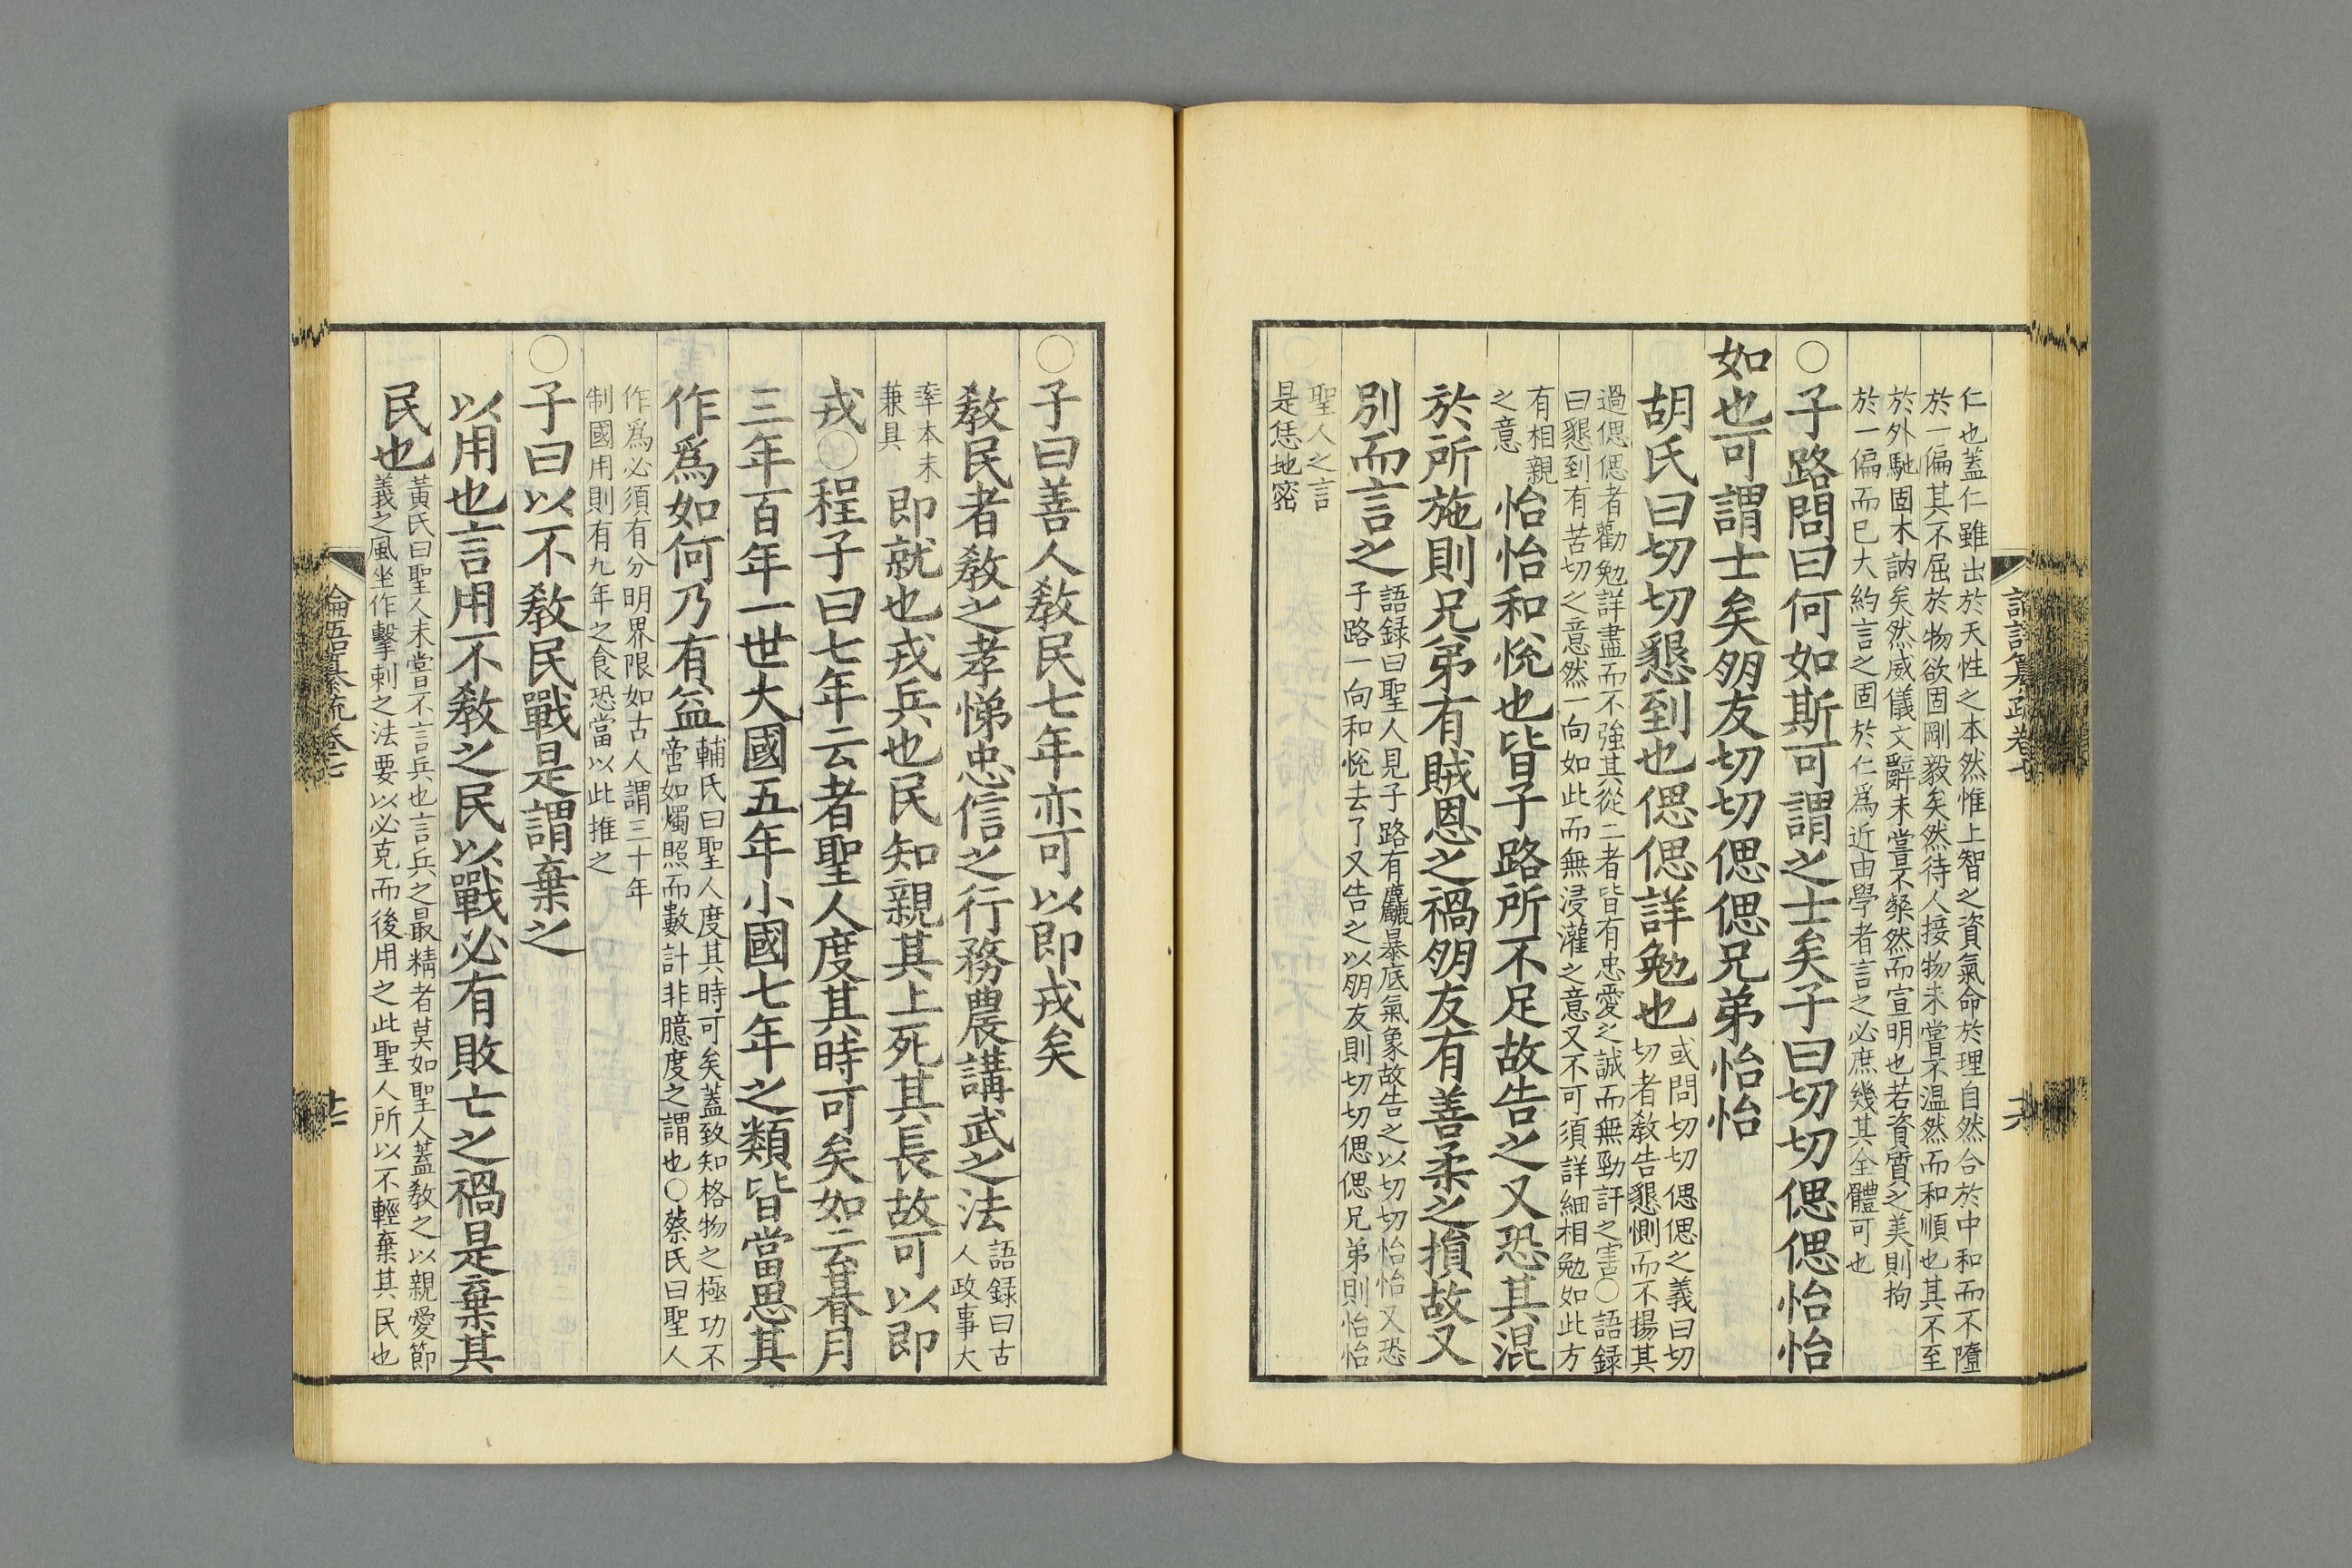 仁也蓋仁雖出於天性之本然惟上智之資氣命於理自然合於中和而不墮
於一偏其不屈於物欲固剛毅矣然待人接物未嘗不温然而和順也其不至
於外馳固木訥矣然威儀文辭未嘗不粲然而宣明也若資質之美則拘
於一偏而已大約言之固於仁爲近由學者言之必庶幾其全體可也
○子路問曰何如斯可謂之士矣子曰切切偲偲怡怡
如也可謂士矣朋友切切偲偲兄弟怡怡
胡氏曰切切懇到也偲偲詳勉也
或問切切偲偲之義曰切
切者教告懇惻而不揚其
過偲偲者勸勉詳盡而不強其從二者皆有忠愛之誠而無勁訐之害○語録
曰懇到有苦切之意然一向如此而無浸灌之意又不可須詳細相勉如此方
有相親
之意
怡怡和悅也皆子路所不足故告之又恐其混
於所施則兄弟有賊恩之禍朋友有善柔之損故又
別而言之
語録曰聖人見子路有麤暴底氣象故告之以切切怡怡又恐
子路一向和悅去了又告之以朋友則切切偲偲兄弟則怡怡
聖人之言
是恁地密
○子曰善人教民七年亦可以即戎矣
教民者教之孝悌忠信之行務農講武之法
語録曰古
人政事大
率本末
兼具
即就也戎兵也民知親其上死其長故可以即
戎○程子曰七年云者聖人度其時可矣如云朞月
三年百年一世大國五年小國七年之類皆當思其
作爲如何乃有益
輔氏曰聖人度其時可矣蓋致知格物之極功不
啻如燭照而數計非臆度之謂也○蔡氏曰聖人
作爲必須有分明界限如古人謂三十年
制國用則有九年之食恐當以此推之
○子曰以不教民戰是謂棄之
以用也言用不教之民以戰必有敗亡之禍是棄其
民也
黃氏曰聖人未嘗不言兵也言兵之最精者莫如聖人蓋教之以親愛節
義之風坐作擊刺之法要以必克而後用之此聖人所以不輕棄其民也
論語纂疏卷七